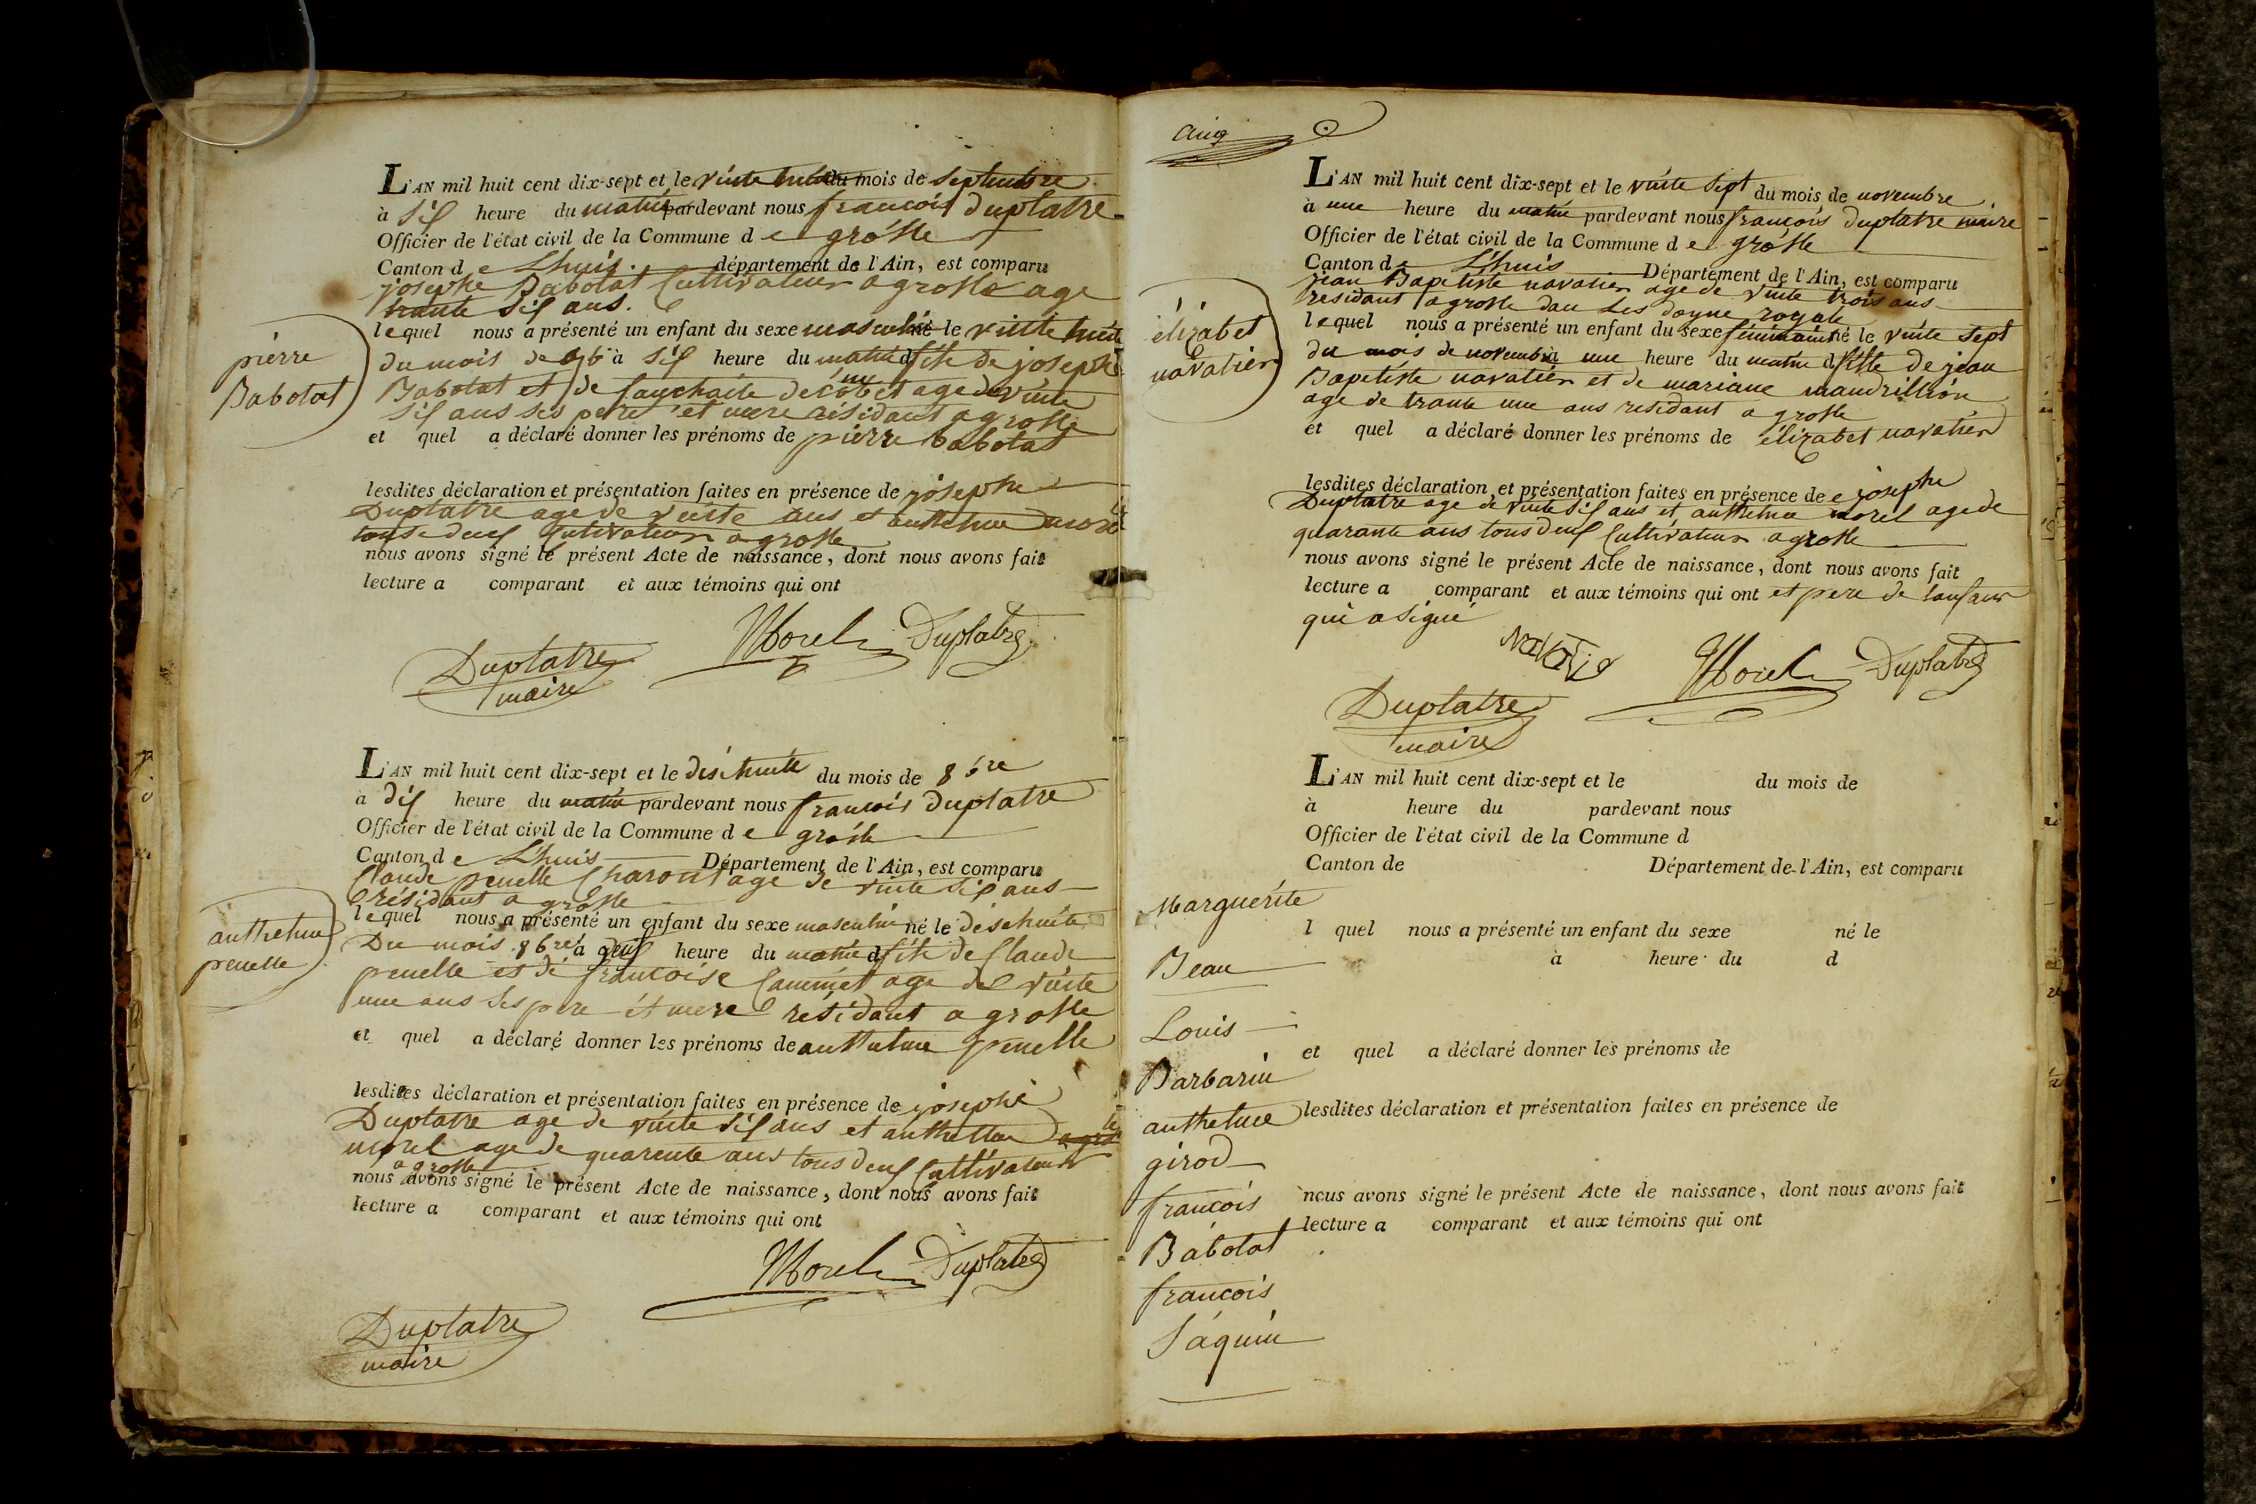 L'AN mil huit cent dix-sept et le vinte huit du mois de septembre
à six heure du matin pardevant nous francois duplatre
Officier de l'état civil de la Commune de grosle
Canton de Lhuis département de l'Ain, est comparu
josephe Babolat Cultivateur a grosle age
trante six ans.
lequel nous a présenté un enfant du sexe masculin né le vinte huit
du mois de 7bre à six heure du matin d fils de josephe
Babolat et de age de vinte
six ans ses pere et mere résidant a grosle
et quel a déclaré donner les prénoms de pierre babolat
pierre
Babolat
lesdites déclaration et présentation faites en présence de josephe
Duplatre age de vinte ans et anthelme morel
tous deux Cultivateur a grosle
nous avons signé le présent Acte de naissance, dont nous avons fait
lecture a comparant et aux témoins qui ont
Morel Duplatre
Duplatre
maire
L'AN mil huit cent dix-sept et le diséhuite du mois de 8bre
a dix heure du matin pardevant nous francois duplatre
Officier de l'état civil de la Commune de grosle
Canton de Lhuis Département de l'Ain, est comparu
Claude penelle Charon age de vinte six ans
résidant a grosle
lequel nous a présenté un enfant du sexe masculin né le diséhuite
Du mois 8bre à deux heure du matin d fils de Claude
penelle et de francoise age de vinte
une ans ses pere et mere résidant a grosle
et quel a déclaré donner les prénoms de anthelme penelle
anthelme
penelle
lesdites déclaration et présentation faites en présence de josephe
Duplatre age de vinte six ans et anthelme
morel age de quarente ans tous deux Cultivateur
a grosle
nous avons signé le présent Acte de naissance, dont nous avons fait
lecture a comparant et aux témoins qui ont
Morel Duplatre
Duplatre
maire
cinq
L'AN mil huit cent dix-sept et le vinte sept du mois de novembre
à une heure du matin pardevant nous francois duplatre maire
Officier de l'état civil de la Commune de grosle
Canton de Lhuis Département de l'Ain, est comparu
jean Bapetiste navatier age de vinte trois ans
residant a grosle dan les doyne royale
lequel nous a présenté un enfant du sexe féminain né le vinte sept
du mois de novembre à une heure du matin d fille de jean
Bapetiste navatier et de mariane mandrillion
age de trante une ans residant a grosle
et quel a déclaré donner les prénoms de élizabet navatier
élizabet
navatier
lesdites déclaration et présentation faites en présence de josephe
Duplatre age de vinte six ans et anthelme morel age de
quarante ans tous deux Cultivateur a grosle
nous avons signé le présent Acte de naissance, dont nous avons fait
lecture a comparant et aux témoins qui ont et pere de lanfant
qui a signé
Navatie Morel Duplatre
Duplatre
maire
L'AN mil huit cent dix-sept et le du mois de
à heure du pardevant nous
Officier de l'état civil de la Commune d
Canton de Département de l'Ain, est comparu
l quel nous a présenté un enfant du sexe né le
à heure du d
et quel a déclaré donner les prénoms de
lesdites déclaration et présentation faites en présence de
nous avons signé le présent Acte de naissance, dont nous avons fait
lecture a comparant et aux témoins qui ont
Marguerite
Beau
Louis
Barbarin
anthelme
girod
francois
Babolat
francois